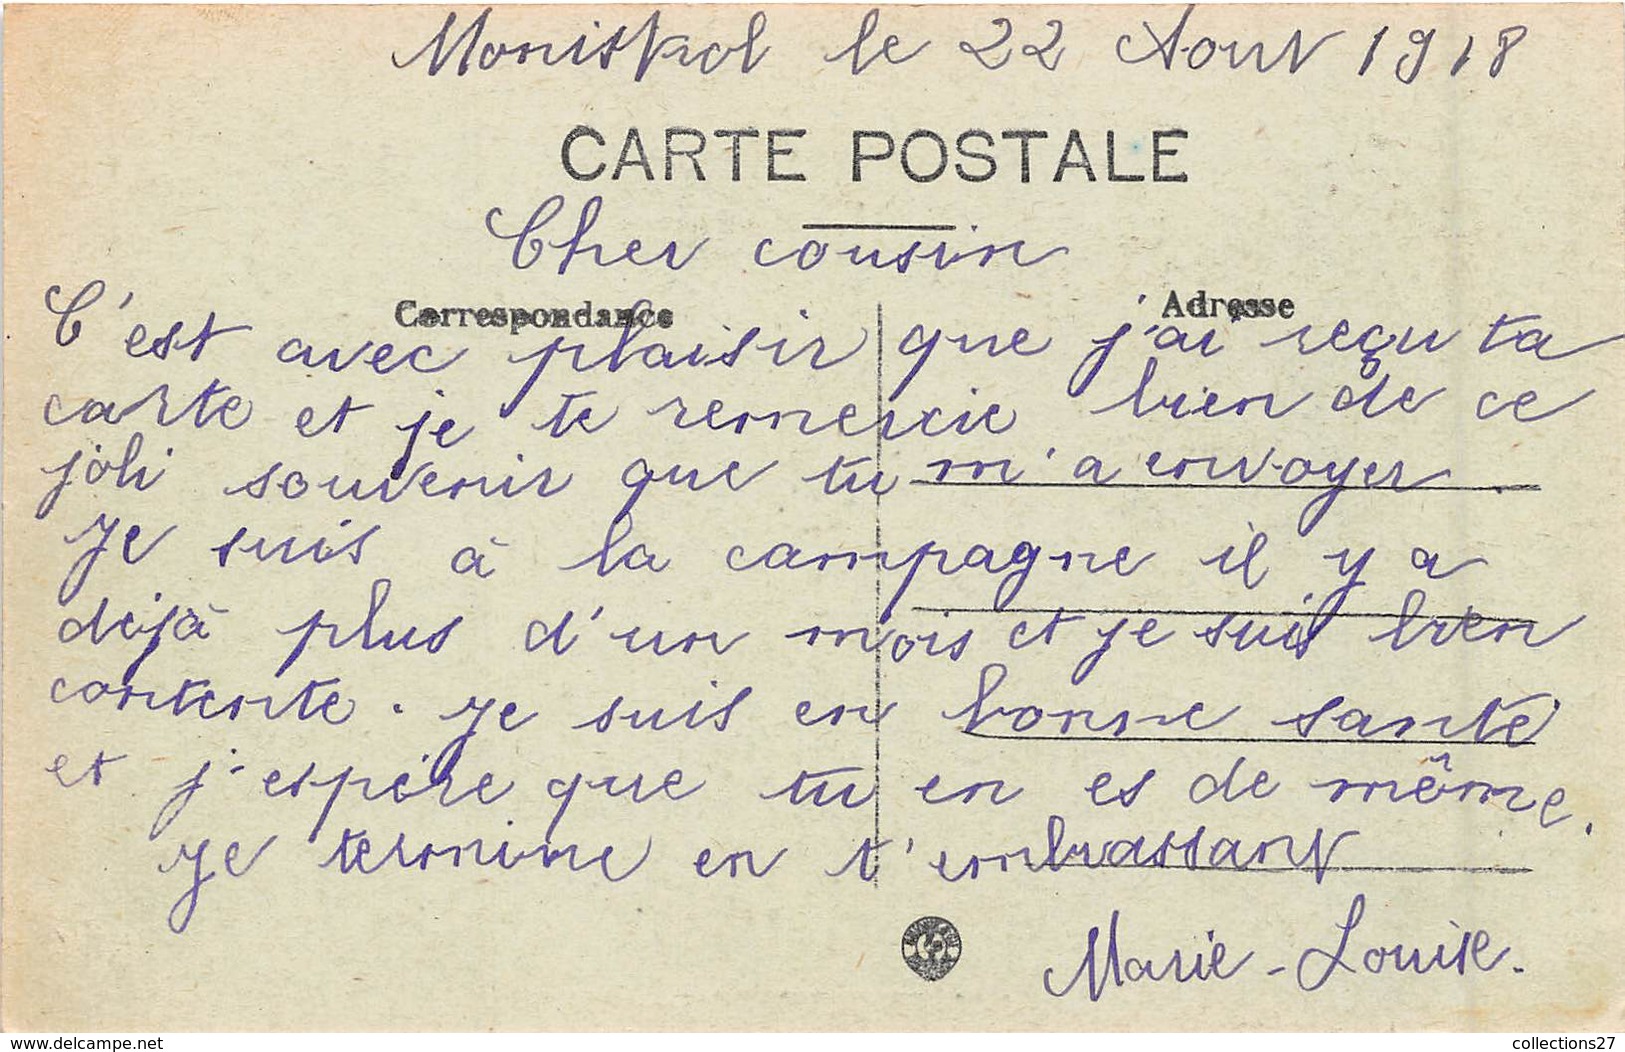 Moniskol le 22 Aout 1918
CARTE POSTALE
Cher cousin
Correspondance
Adresse
C'est avec plaisir que j'ai reçu ta
carte et je te remercie bien de ce
joli souvenir que tu m'a envoyer.
Je suis à la campagne il y a
déjà plus d'un mois et je suis bien
contente. Je suis en bonne santé
et j'espère que tu en es de même.
Je termine en t'embrassant
Marie-Louise.
www.delcampe.net
collections27